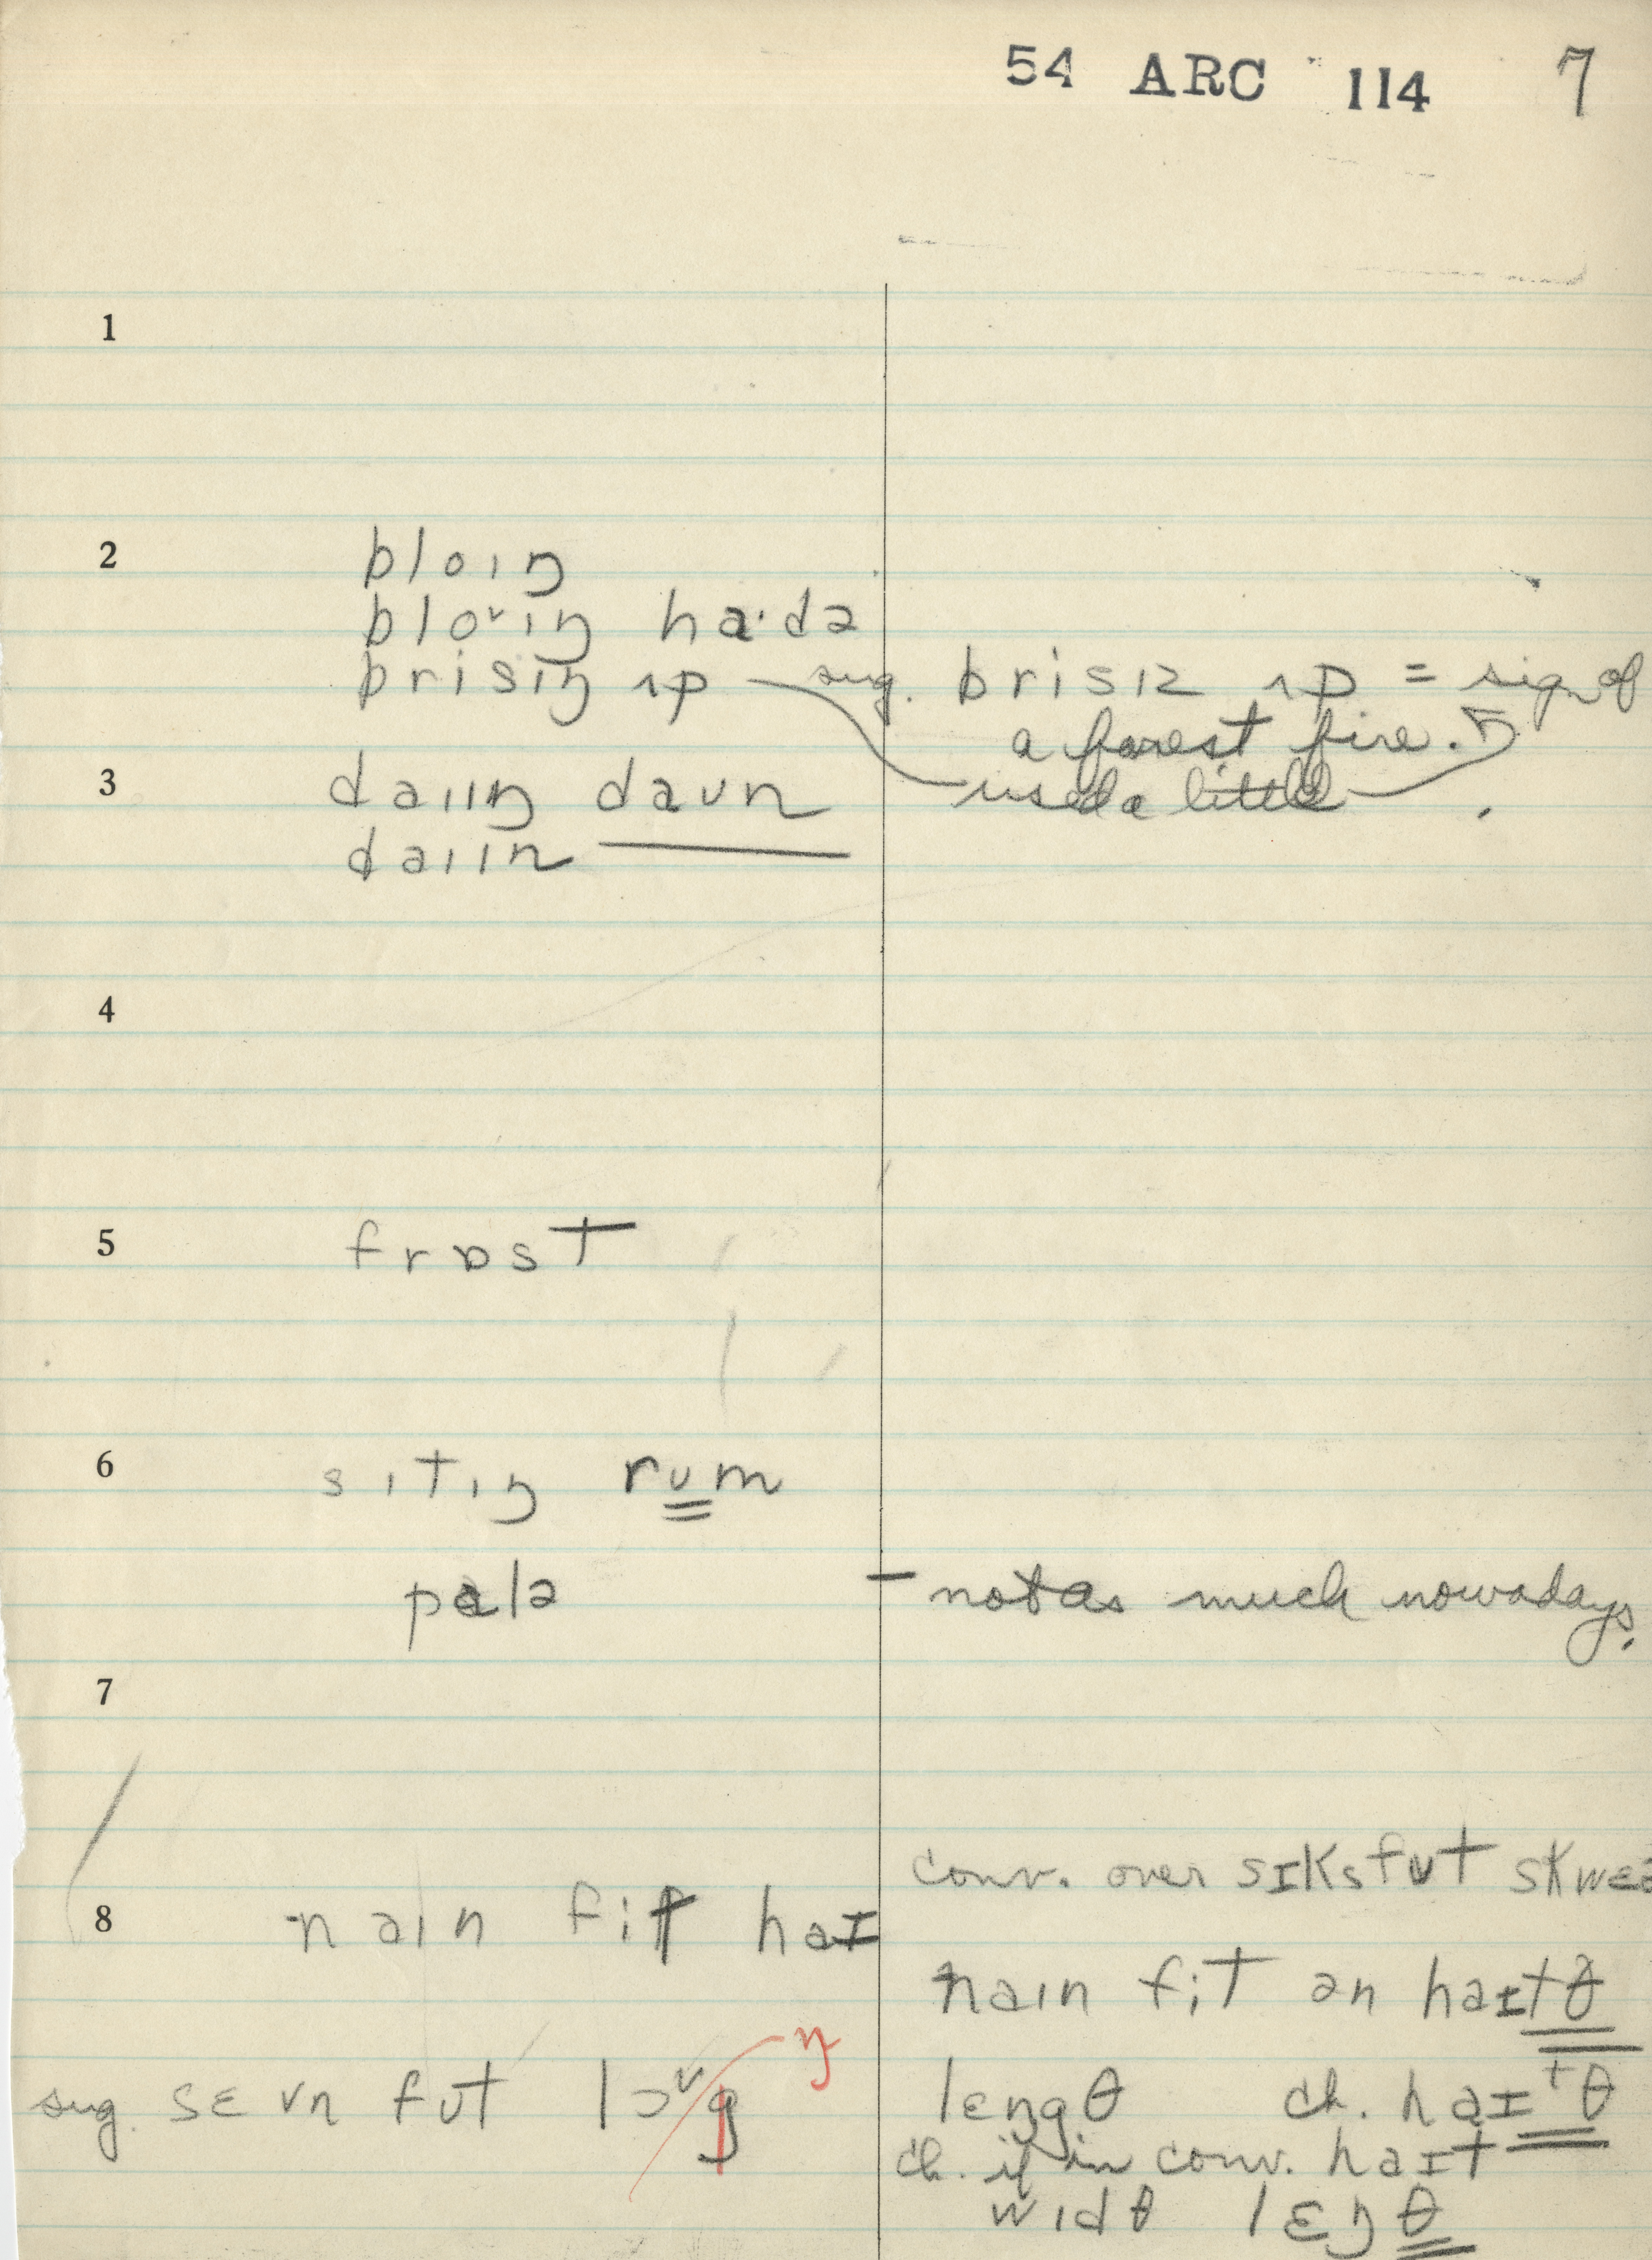 54 ARC 114 7
1
2 bloɪŋ
bloᵛɪŋ ha·də
brisɪŋ ʌp sug. brisɪz ʌp = sign of
a forest fire.
3 daɪɪŋ daʊn used a little
daɪɪn ———
4
5 frɒst
6 sɪtɪŋ rʊm
palə – not as much nowadays.
7
conv. over sɪksfʊt skwɛə
8 naɪn fit haɪ
naɪn fit ən haɪtθ
sug. sɛvn fʊt lɔᵛg ŋ lɛngθ ch. haɪtθ
ch. if in conv. haɪt
wɪdθ lɛŋθ